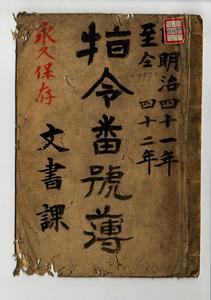 明治四十一年
至仝 四十二年
指令番號簿
文書課
永久保存